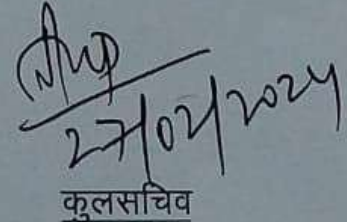 27/02/2024
कुलसचिव